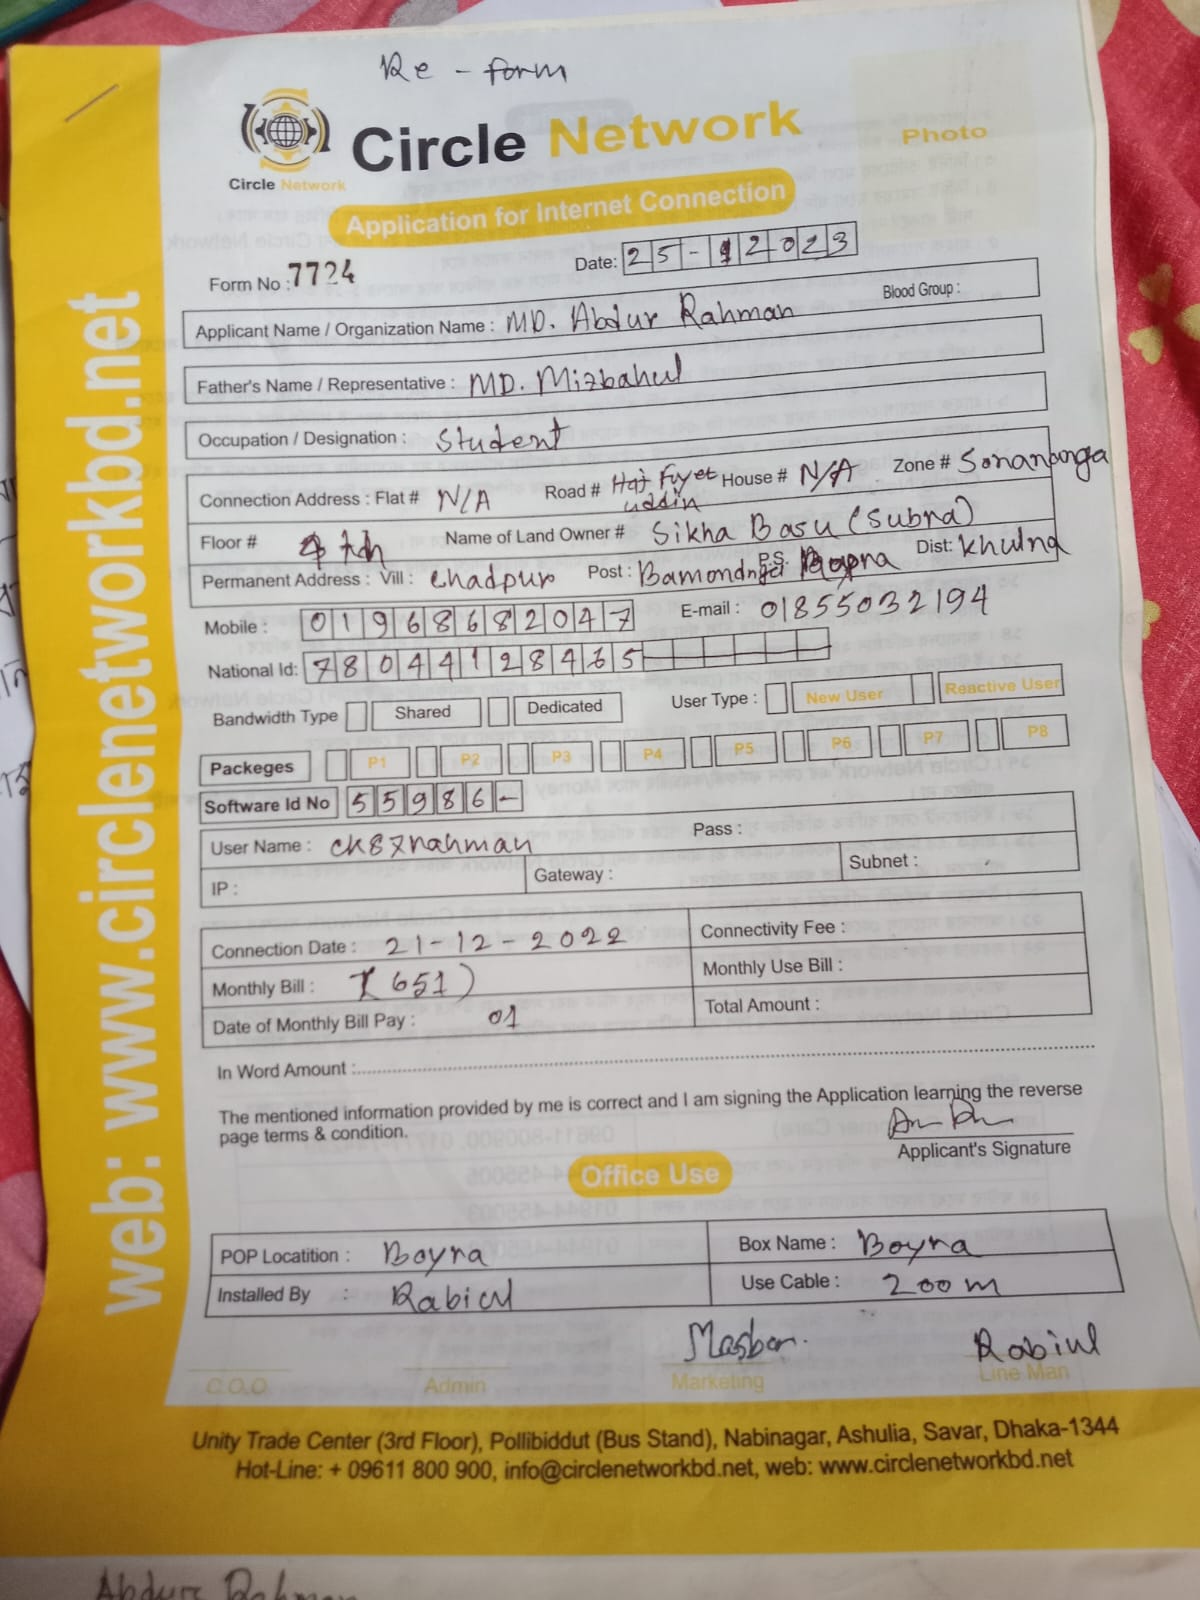 Re - form
Circle Network
Circle Network
Photo
Application for Internet Connection
Form No : 7724 Date: 25-12023
Applicant Name / Organization Name : MD. Abdur Rahman Blood Group :
Father's Name / Representative : MD. Mizbahul
Occupation / Designation : Student
Connection Address : Flat # N/A Road # Haj Fuyet uddin House # N/A Zone # Sonanbonga
Floor # 7th Name of Land Owner # Sikha Basu (Subra)
Permanent Address : Vill : Chadpur Post : Bamondnga P.S. Dist: Khulna
Mobile : 01968682047 E-mail : 01855032194
National Id: 78044128465
Bandwidth Type Shared Dedicated User Type : New User Reactive User
Packeges P1 P2 P3 P4 P5 P6 P7 P8
Software Id No 55986-
User Name : ck87rahman Pass :
IP : Gateway : Subnet :
Connection Date : 21-12-2022 Connectivity Fee :
Monthly Bill : (651) Monthly Use Bill :
Date of Monthly Bill Pay : 01 Total Amount :
In Word Amount :
The mentioned information provided by me is correct and I am signing the Application learning the reverse
page terms & condition.
Applicant's Signature
Office Use
POP Locatition : Boyra Box Name : Boyra
Installed By : Rabiul Use Cable : 200m
Rabiul
C.O.O Admin Marketing Line Man
Unity Trade Center (3rd Floor), Pollibiddut (Bus Stand), Nabinagar, Ashulia, Savar, Dhaka-1344
Hot-Line: + 09611 800 900, info@circlenetworkbd.net, web: www.circlenetworkbd.net
web: www.circlenetworkbd.net
Abdur Rahman